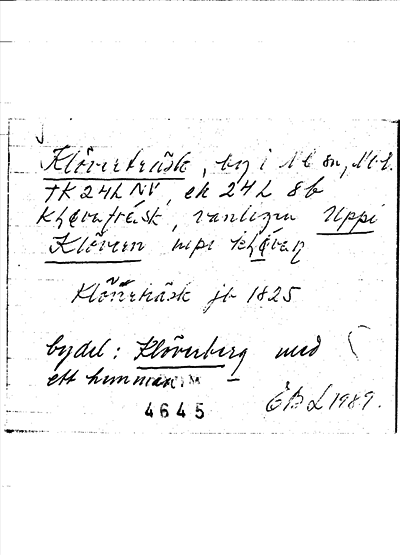 Klöverträsk, by i Nl sn, Nb l.
TK 24L NV, ek 24L 8b
vanligen Uppi
Klöveren
Klöfverträsk jb 1825
bydel: Klöverberg med
ett hemman
4645
EBL 1989.